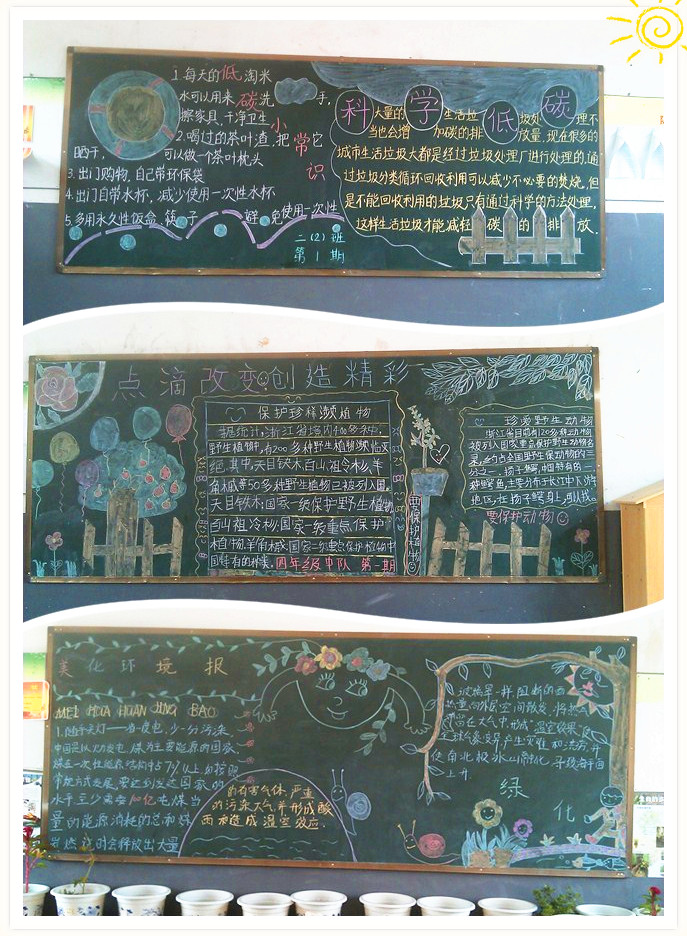 1.每天的低淘米
水可以用来碳洗手,
擦家具,干净卫生
小常识
2.喝过的茶叶渣,把它
晒干,可以做个茶叶枕头
3.出门购物,自己带环保袋
4.出门自带水杯,减少使用一次性水杯
5.多用永久性饭盒、筷子,避免使用一次性
二(2)班
第1期
科学低碳
大量的生活垃圾处理不
当也会增加碳的排放量,现在很多的
城市生活垃圾大都是经过垃圾处理厂进行处理的,通
过垃圾分类循环回收利用可以减少不必要的焚烧,但
是不能回收利用的垃圾只有通过科学的方法处理,
这样生活垃圾才能减轻碳的排放.
点滴改变创造精彩
保护珍稀濒植物
据统计,浙江省境内
野生植物中,有200多种野生植物濒临灭
绝,其中,天目铁木,百山祖冷杉,羊
角槭等50多种野生植物已被列入国
天目铁木:国家一级保护野生植物
百山祖冷杉:国家一级重点保护
植物.羊角槭:国家一级重点保护植物中
国特有的种类.四年级中队 第一期
要保护植物
珍爱野生动物
浙江省目前有120多种动物
被列入国家重点保护野生动物名
录,约占全国野生保动物的三
分之一,扬子鳄,中国特有的一
种鳄鱼,主要分布于长江中下游
地区,在扬子鳄身上,可以找
要保护动物
美化环境报
MEI HUA HUAN JING BAO
1.随手关灯——省一度电,少一分污染
中国是以火力发电、煤为主要能源的国家.
煤在一次性能源结构中占7%以上,如按照
常规方式发展,要达到发达国家的
水平至少需要100亿吨煤当
量的能源消耗的总和.煤
燃烧时会释放出大量
的有害气体,严重
的污染大气,并形成酸
雨和造成温室效应.
玻璃是一样,阻断的西
热量向外层空间散发,将热
滞留在大气中,形成"温室效果"使
全球气象异常,产生灾难和洪涝,并
使南北极冰山消化,导致海平面
上升.
绿化